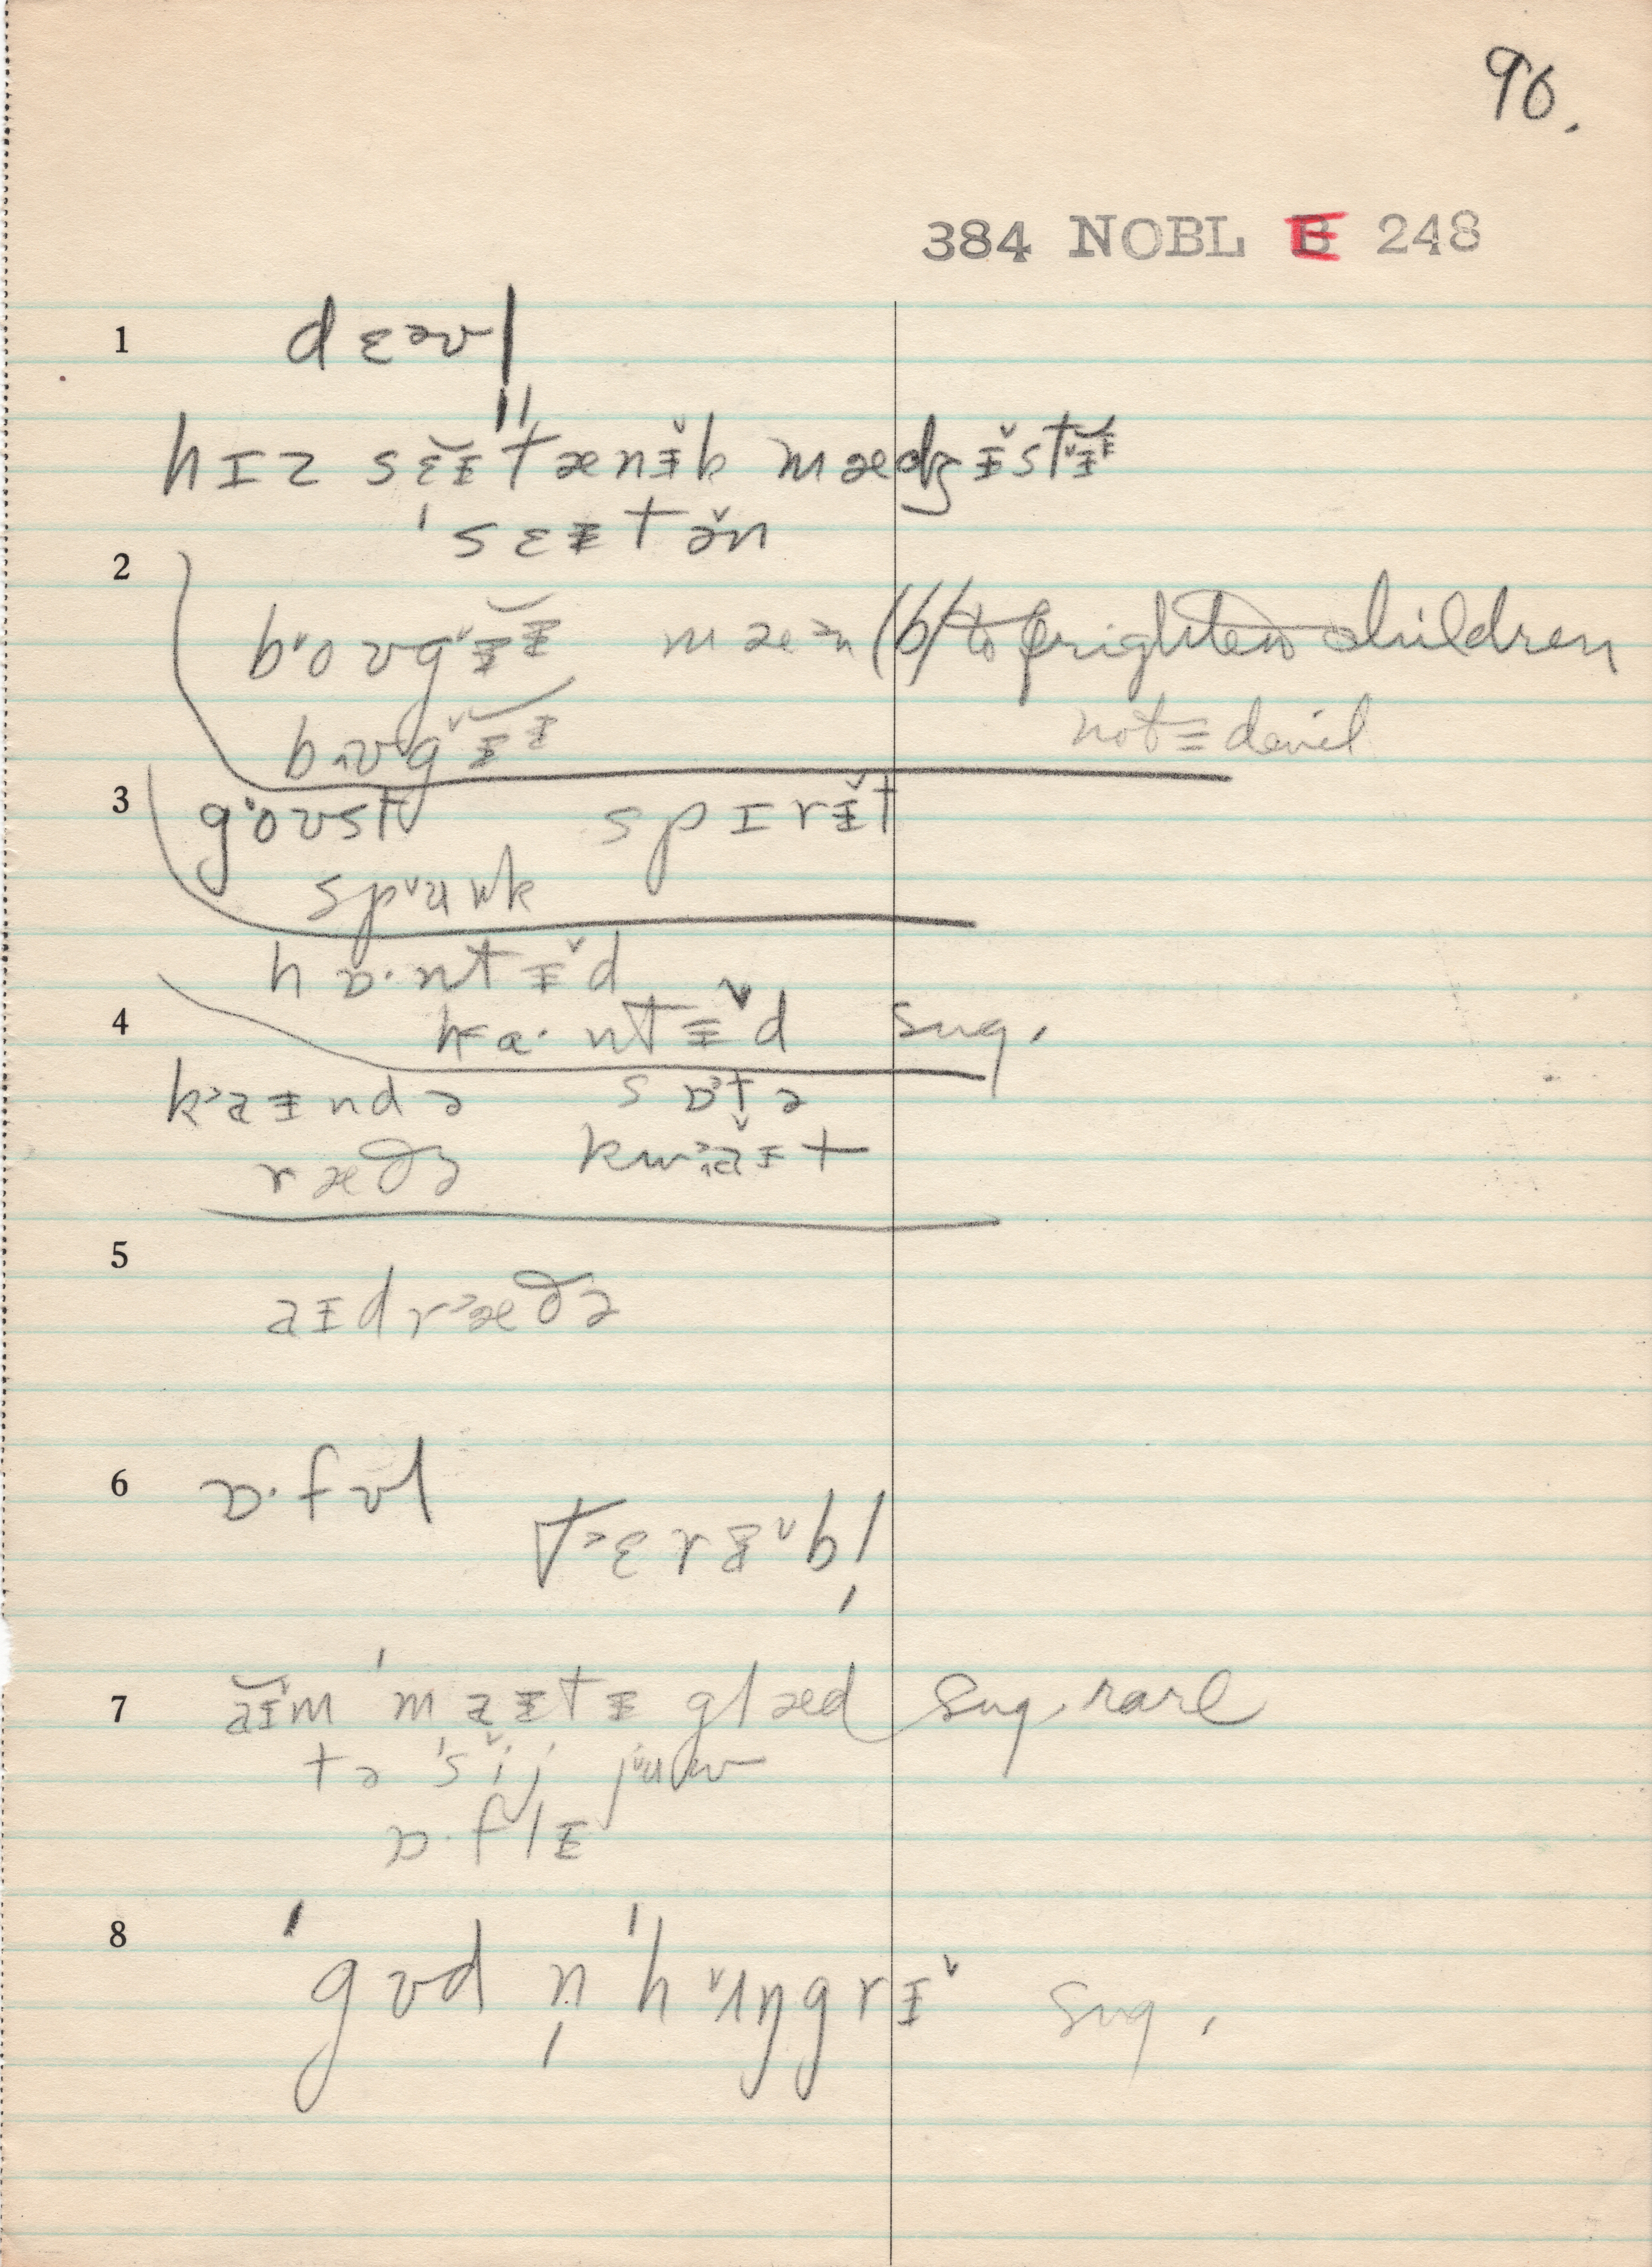 96.
384 NOBL E 248
1 dɛəvl̩
hɪz sɛ̆ɪ̵̆ˈtænɪ̵̆k mædʒɪ̵̆stɪ̵̆ɪ̵
ˈsɛɪ̵tə̆n
2
bˈoʊgˈɪ̵ɪ̵ mæən (b) to frighten children
bʌʊgˇɪ̵ɪ̵ not ≡ devil
3 gˈoʊst spɪrɪ̵̆t
spˇuwk
hɒ·ntɪ̵̆d
4 ha·ntɪ̵̆d sug.
k˃aɪ̵ndə sɒ˃t̬ə
ræðə kw˃aɪ̵t
5
aɪ̵dr˃æðə
6 ɒ·fʊl
t˃ɛrɪ̵ˇbl̩
7 ăɪ̵̆m ˈmaɪ̵tɪ̵ glæd sug. rare
tə ˈsˇij jˇuw
ɒ·flɪ̵
8 ˈgʊd n̩ ˈhˇʌŋgrɪ̵ˇ sug.